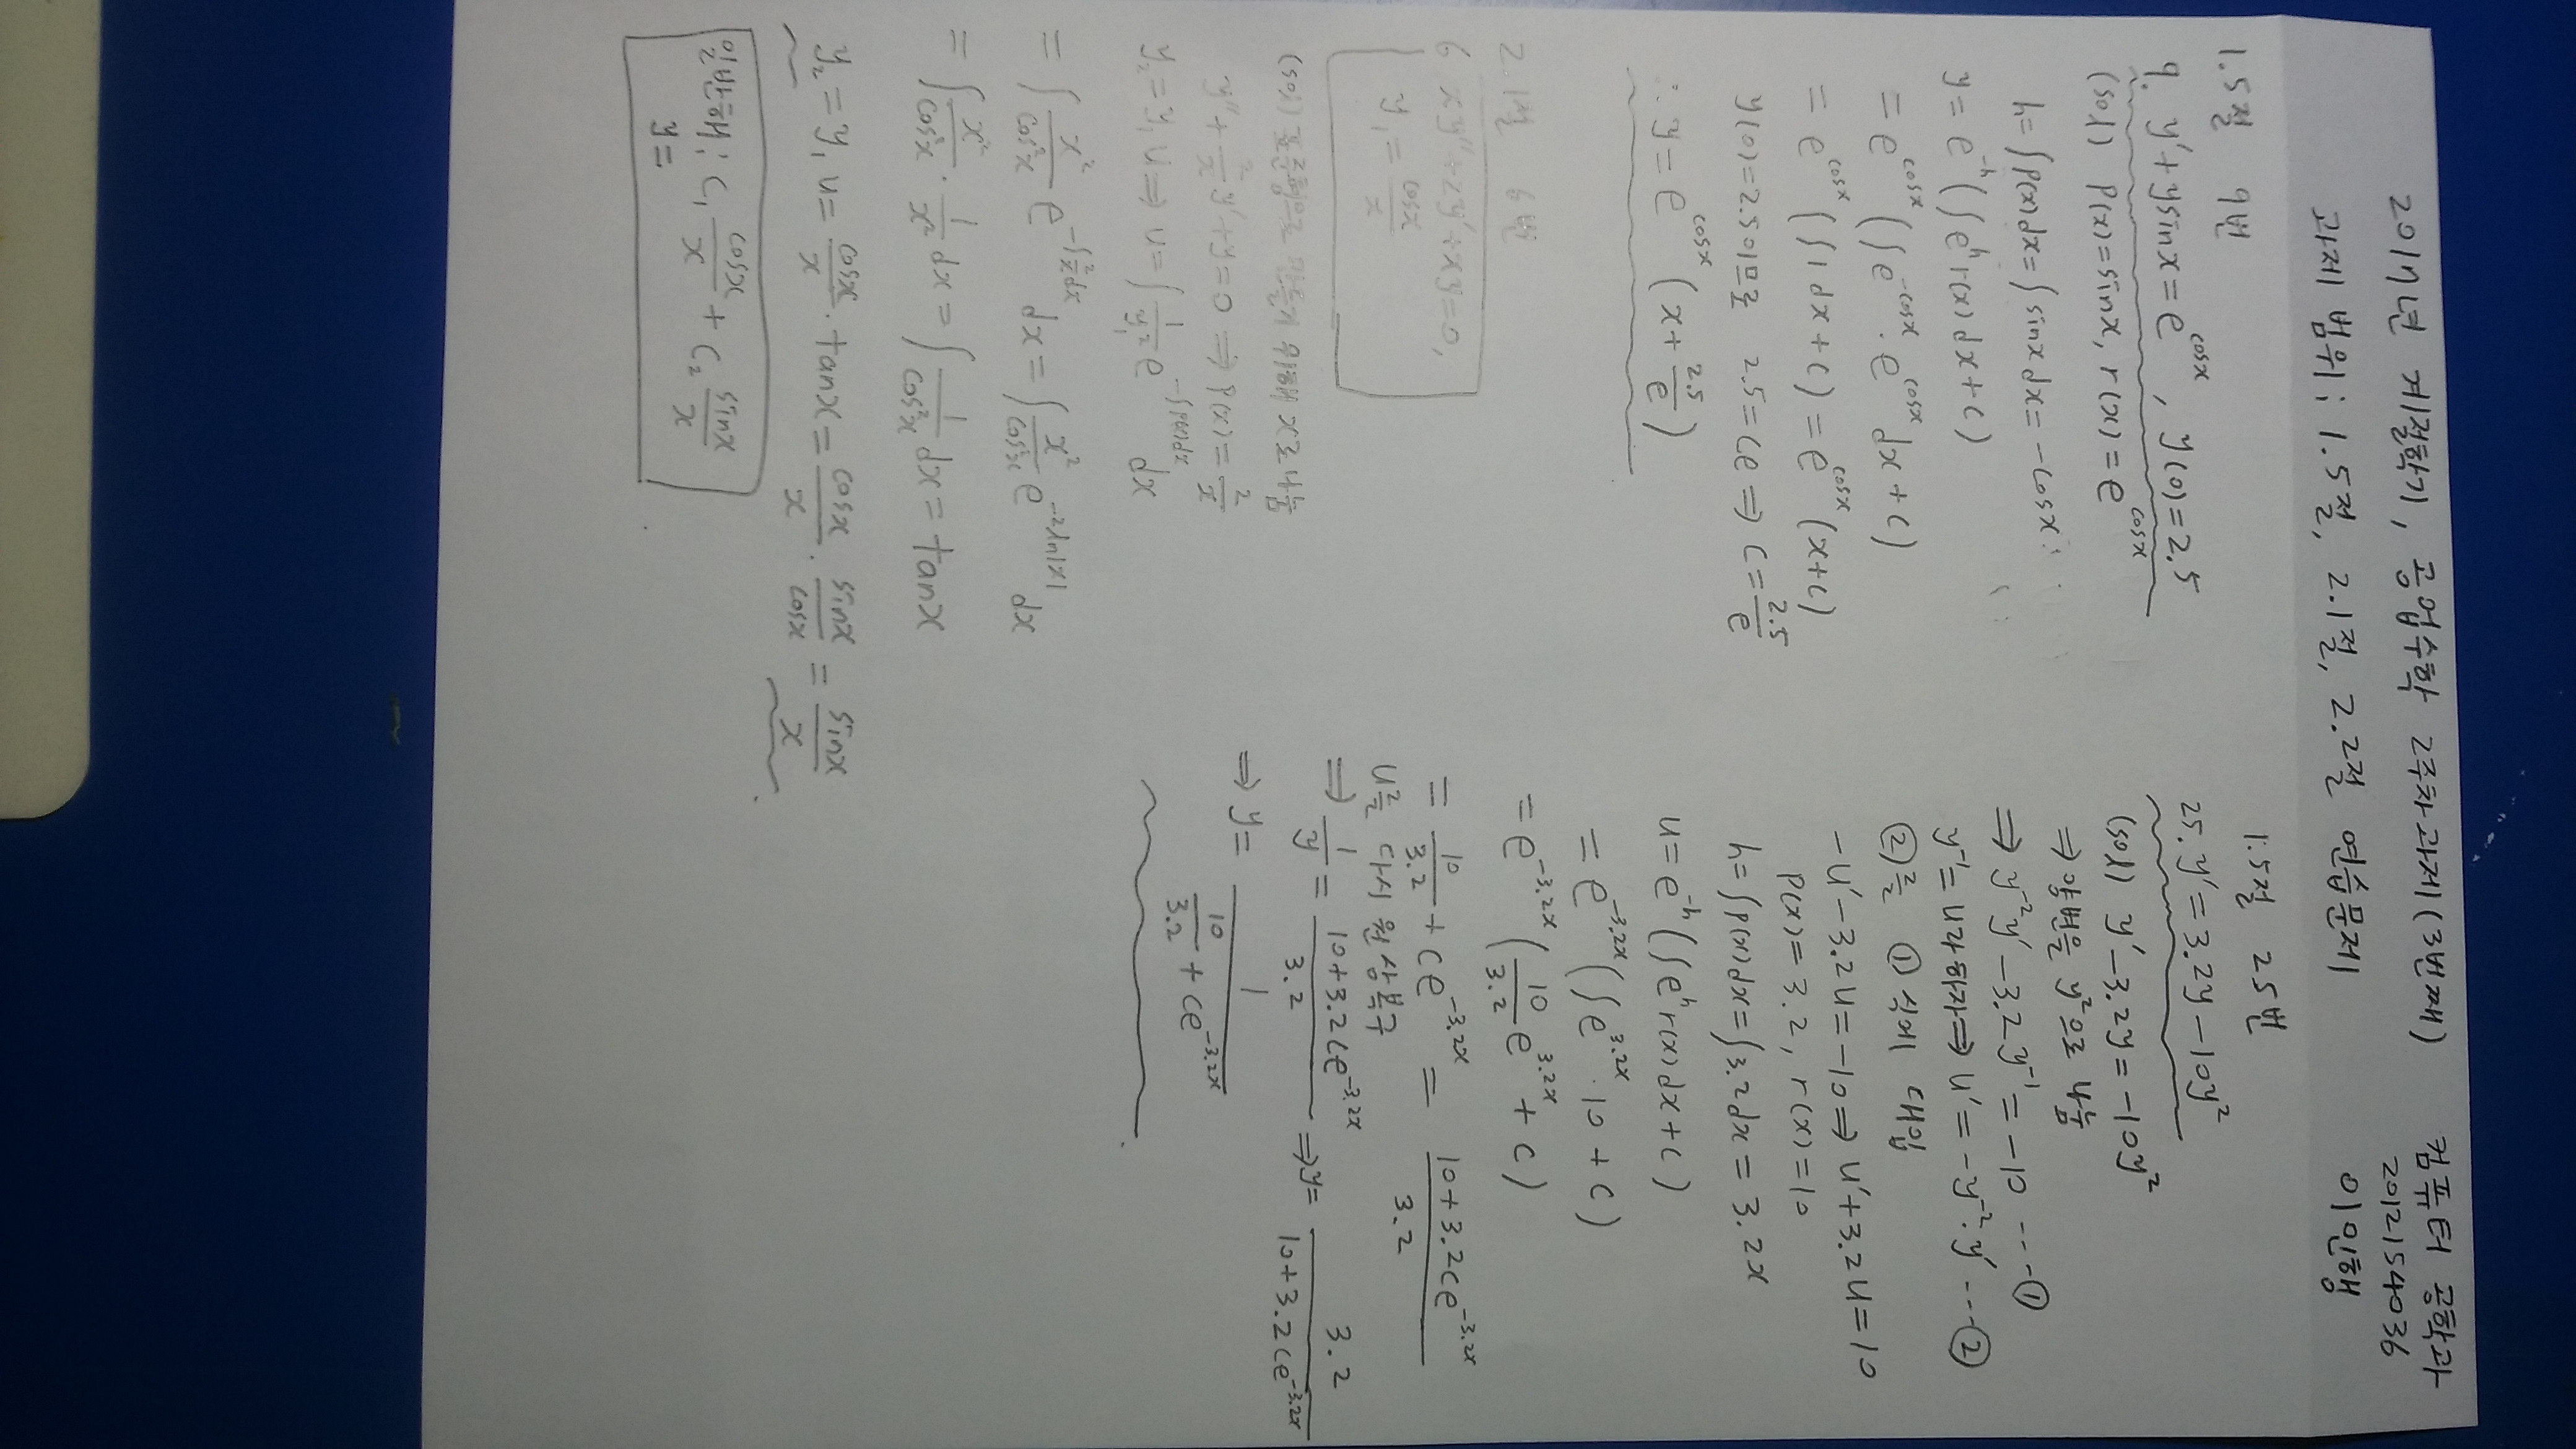 2017년 계절학기, 공업수학 2주차과제(3번째)
컴퓨터 공학과
2012154036
이인행
과제 범위; 1.5절, 2.1절, 2.2절 연습문제
1.5절 9번
9. y'+ysinx=e^cosx, y(0)=2.5
(sol) P(x)=sinx, r(x)=e^cosx
h=∫P(x)dx=∫sinxdx=-cosx
y=e^-h(∫e^h r(x)dx+c)
=e^cosx(∫e^-cosx·e^cosx dx+c)
=e^cosx(∫1dx+c)=e^cosx(x+c)
y(0)=2.5이므로 2.5=ce⇒c=2.5/e
∴y=e^cosx(x+2.5/e)
2.1절 6번
6 xy''+2y'+xy=0,
y₁=cosx/x
(sol) 표준형으로 만들기 위해 x로 나눔
y''+2/x y'+y=0⇒P(x)=2/x
y₂=y₁u⇒u=∫1/y₁² e^-∫P(x)dx dx
=∫x²/cos²x e^-∫2/x dx dx=∫x²/cos²x e^-2ln|x| dx
=∫x²/cos²x·1/x² dx=∫1/cos²x dx=tanx
y₂=y₁u=cosx/x·tanx=cosx/x·sinx/cosx=sinx/x
일반해; c₁cosx/x+c₂sinx/x
y=
1.5절 25번
25. y'=3.2y-10y²
(sol) y'-3.2y=-10y²
⇒양변을 y²으로 나눔
⇒y⁻²y'-3.2y⁻¹=-10 ----①
y⁻¹=u라하자⇒u'=-y⁻²·y' ---②
②를 ①식에 대입
-u'-3.2u=-10⇒u'+3.2u=10
P(x)=3.2, r(x)=10
h=∫P(x)dx=∫3.2dx=3.2x
u=e^-h(∫e^h r(x)dx+c)
=e^-3.2x(∫e^3.2x·10+c)
=e^-3.2x(10/3.2 e^3.2x+c)
=10/3.2+ce^-3.2x=(10+3.2ce^-3.2x)/3.2
u를 다시 원상복구
⇒1/y=(10+3.2ce^-3.2x)/3.2⇒y=3.2/(10+3.2ce^-3.2x)
⇒y=1/(10/3.2+ce^-3.2x)